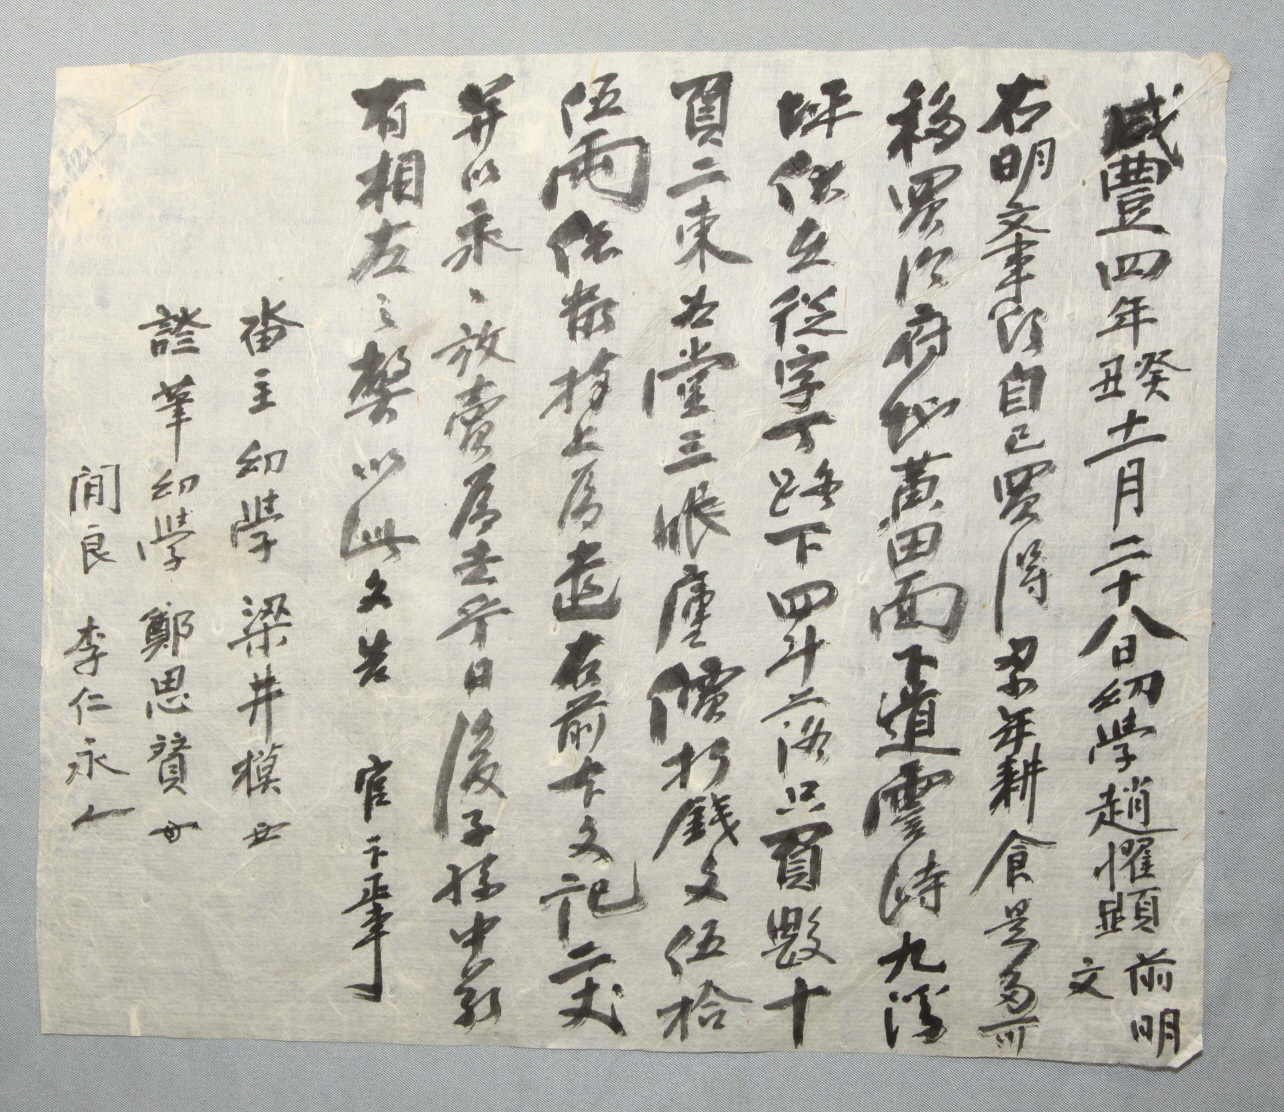 咸豐四年癸丑十二月二十八日幼學趙懼顯前明文
右明文事段自己買得累年耕食是多可
移買次府地黃田面下道雲洑九淂
坪伏在從字丁踏下四斗落只負數十
負二束㐣堂三帳庫價折錢文伍拾
伍兩依數捧上爲遣右前本文記二丈
幷以永〻放賣爲去乎日後子孫中若
有相左之弊以此文告 官卞正事
畓主幼學 梁井模
證筆幼學 鄭思贇
閒良 李仁永